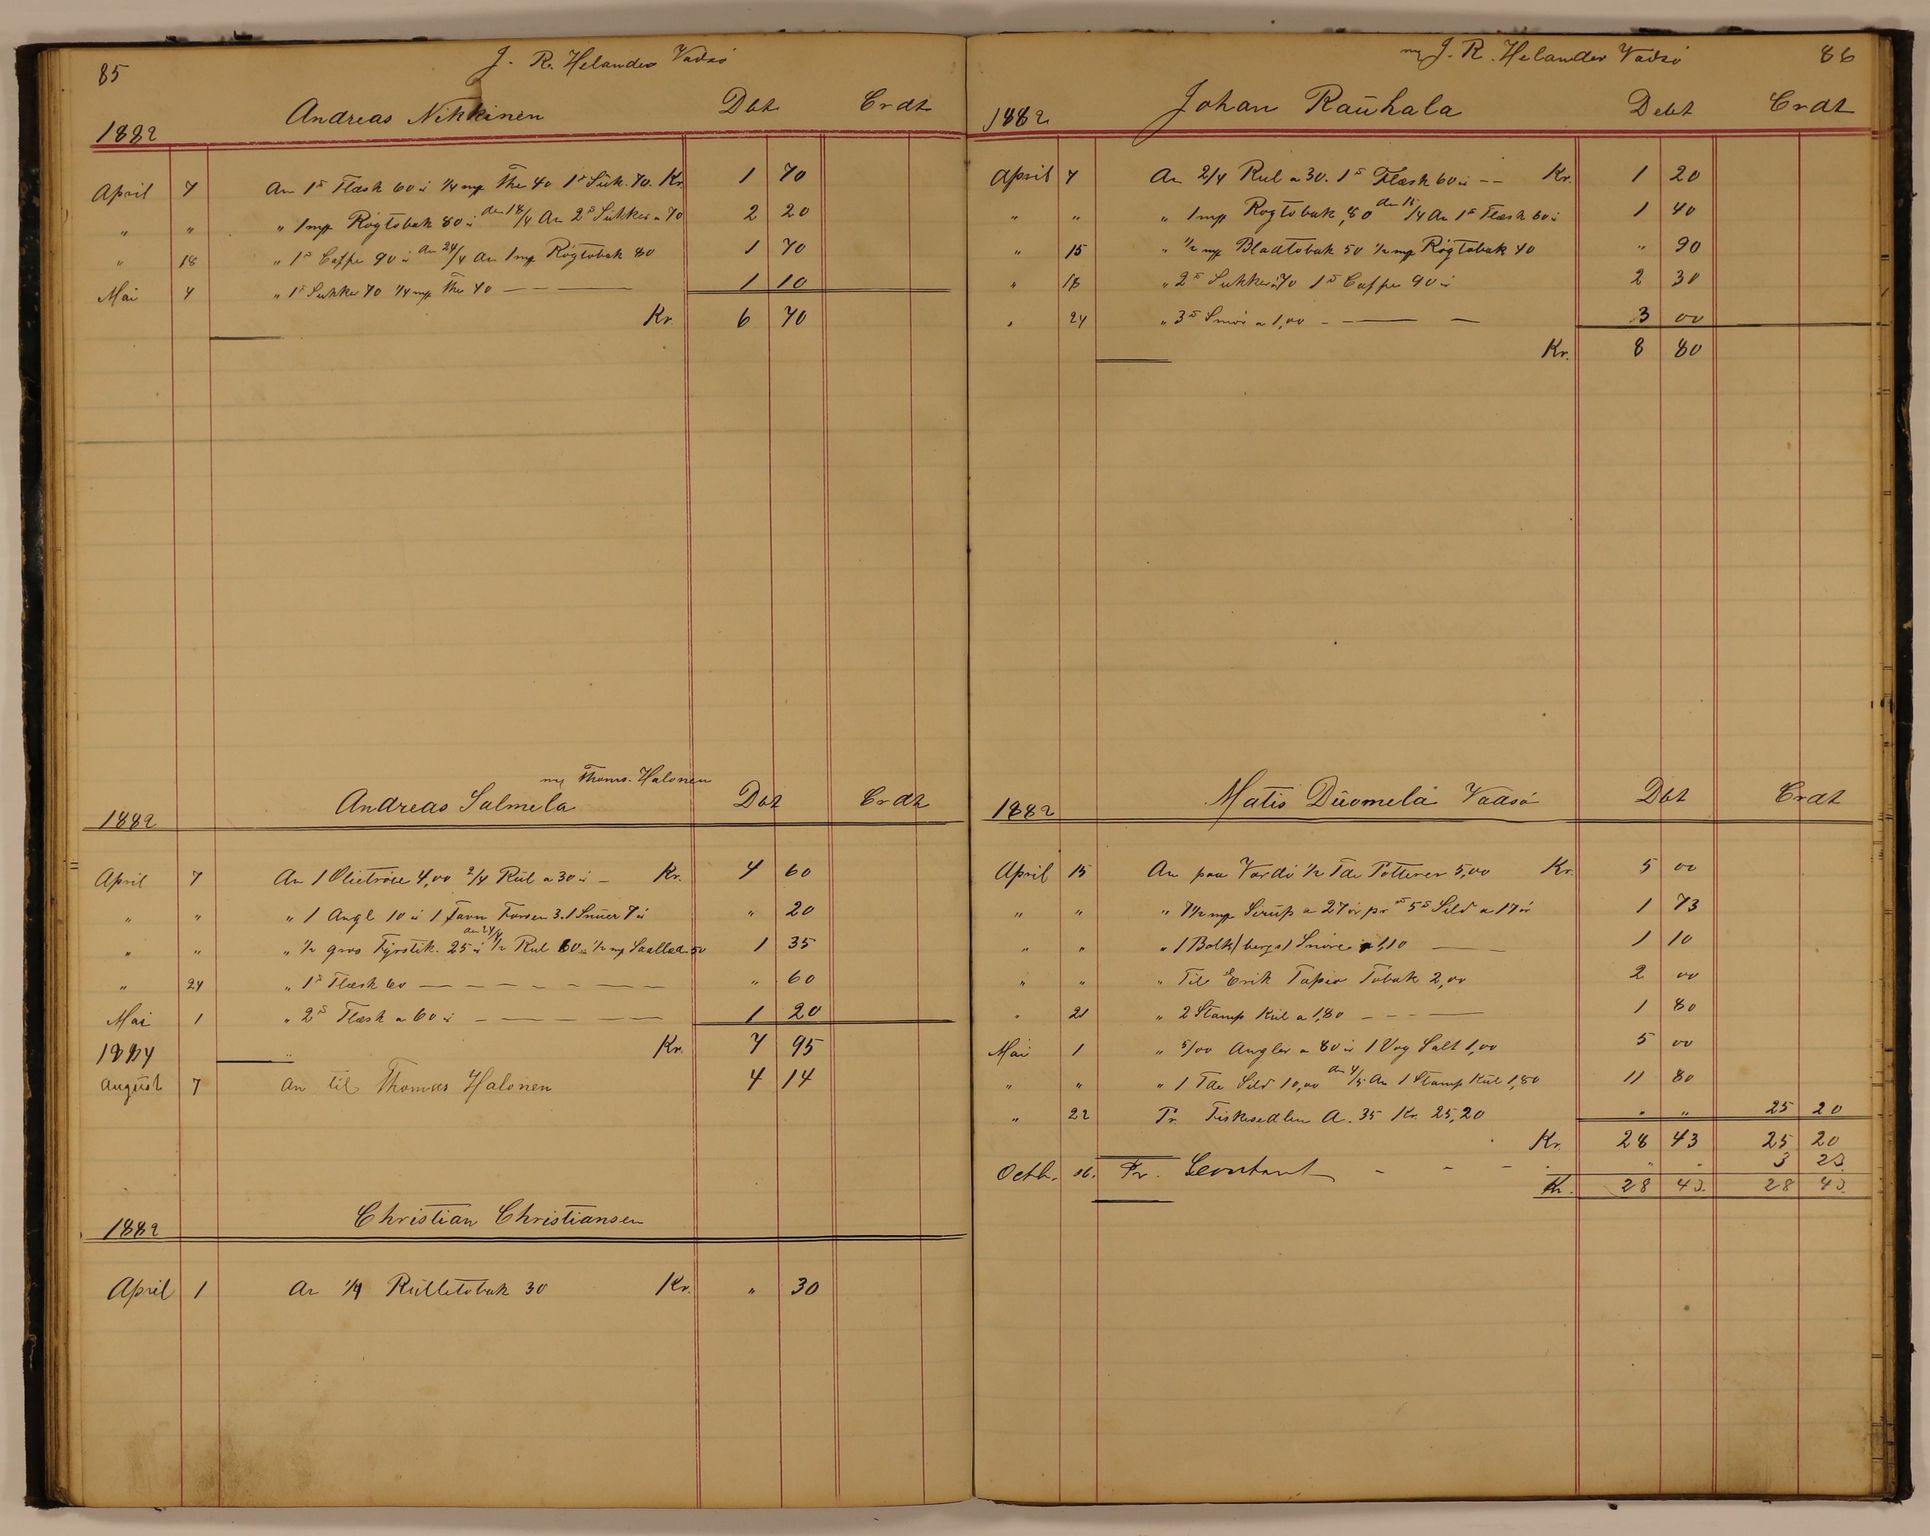 85
J. R. Helander Vadsö
1882 Andreas Nikkinen Debt Crdt
April 7 An 1 Flæsk 60 ö 1/4 mp The 40 1 Suk. 70. Kr. 1 70
" " " 1 mp Røgtobak 80 ö An 18/4 An 2 Sukker a 70 2 20
" 18 " 1 Caffe 90 ö An 24/4 An 1 mp Røgtobak 80 1 70
Mai 4 " 1 Sukker 70 1/4 mp The 40 — — — 1 10
Kr. 6 70
Thoms. Halonen
1882 Andreas Salmela Debt Crdt
April 7 An 1 Olietröie 4,00 2/4 Rul a 30 ö — Kr. 4 60
" " " 1 Angl 10 ö 1 Favn Forsen 3. 1 Snuer 7 ö " 20
" " " 1/2 gros Fyrstik. 25 ö An 24/4 1/2 Rul 60 ö 1/2 mp 50 1 35
" 24 " 1 Flæsk 60 — — — — " 60
Mai 1 " 2 Flæsk a 60 ö — — — 1 20
1884 Kr. 7 95
August 7 An til Thomas Halonen 4 14
1882 Christian Christiansen
April 1 An 1/4 Rulletobak 30 Kr. " 30
J. R. Helander Vadsö 86
1882 Johan Rauhala Debt Crdt
April 7 An 2/4 Rul a 30. 1 Flæsk 60 ö — — Kr. 1 20
" " " 1 mp Røgtobak, 80 An 15/4 An 1 Flæsk 60 ö 1 40
" 15 " 1/2 mp Bladtobak 50 1/2 mp Røgtobak 40 " 90
" 18 " 2 Sukker a 70 1 Caffe 90 ö 2 30
" 24 " 3 Smör a 1,00 — — — 3 00
Kr. 8 80
1882 Matis Duomela Vadsö Debt Crdt
April 15 An paa Vardö 1/2 Tde Potteter 5,00 Kr. 5 00
" " " 7 1/2 mp Sirup a 27 ör pr 5 Sild a 17 ör 1 73
" " " 1 Bolk/bergs/ Snöre a 1,10 — 1 10
" " " Til Erik Tapio Tobak 2,00 2 00
" 21 " 2 Stamp Kul a 1,80 — — — 1 80
Mai 1 " 5/00 Angler a 80 ö 1 Vog Salt 1,00 5 00
" " " 1 Tde Sild 10,00 An 4/5 An 1 Stamp Kul 1,80 11 80
" 22 Pr Fiskesedlen A. 35 Kr. 25,20 " " 25 20
Kr. 28 43 25 20
Octb. 16. Pr. Contant — — — " " 3 23
Kr. 28 43 28 43